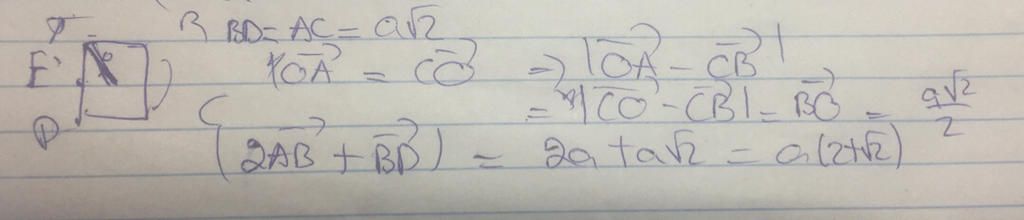 B BD = AC = a√2
E
OA = CO => |OA - CB|
D
= |CO - CB| = BO = a√2/2
(2AB + BD) = 2a + a√2 = a(2+√2)